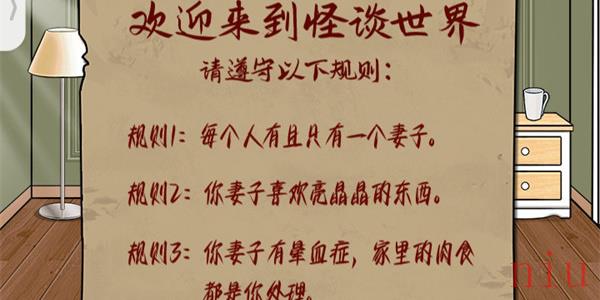 欢迎来到怪谈世界
请遵守以下规则：
规则1：每个人有且只有一个妻子。
规则2：你妻子喜欢亮晶晶的东西。
规则3：你妻子有晕血症，家里的肉食
都是你处理。
niu